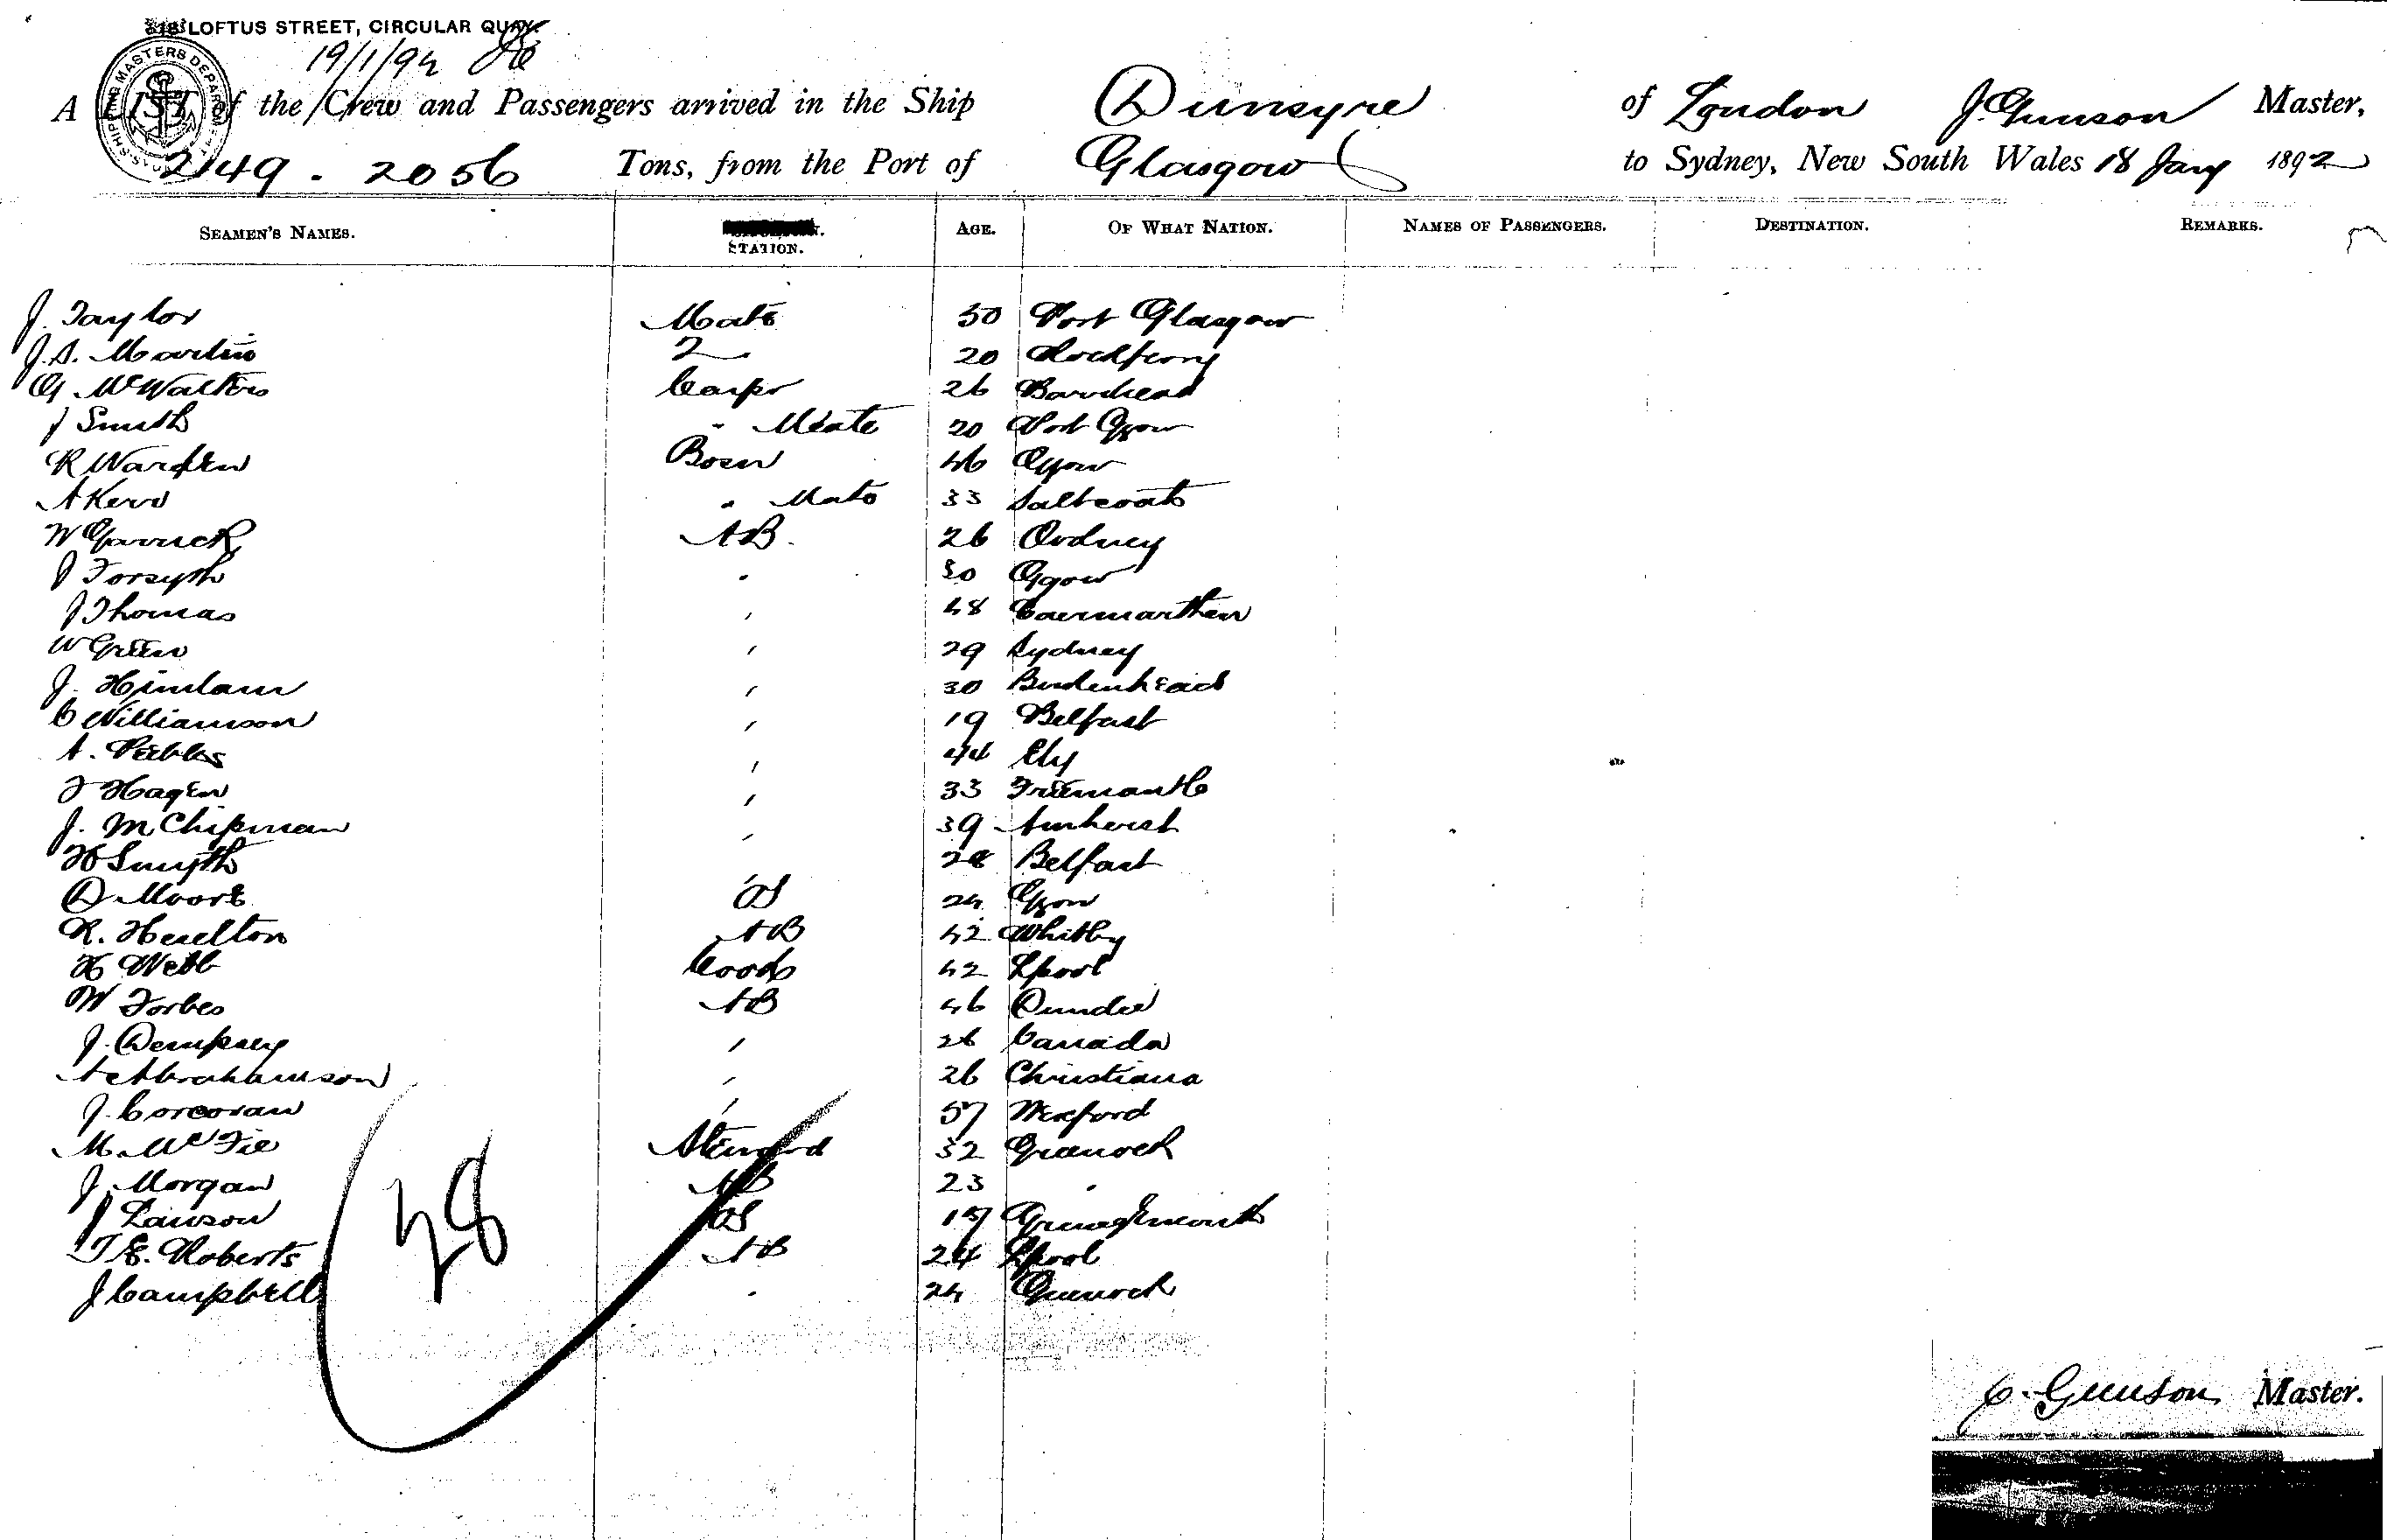 LOFTUS STREET, CIRCULAR QUAY.
19/1/92
SHIPPING MASTERS DEPARTMENT
A LIST of the Crew and Passengers arrived in the Ship Dunsyre of London J. Gunson Master,
2149 - 2056 Tons, from the Port of Glasgow to Sydney, New South Wales 18 Jany 1892
SEAMEN'S NAMES. STATION. AGE. OF WHAT NATION. NAMES OF PASSENGERS. DESTINATION. REMARKS.
J. Taylor Mate 50 Port Glasgow
J.A. Martin 2 20 Rockferry
G McWalters Carpr 26 Barrhead
J Smith " Mate 20 Port Ggow
R Warden Bosn 46 Ggow
A Kerr " Mate 33 Saltcoats
W Garrick AB. 26 Orkney
J Forsyth " 30 Ggow
J Thomas " 48 Caermarthen
W Green " 29 Sydney
J. " 30 Birkenhead
C Williamson " 19 Belfast
A. Peebles " 44 Ely
J Hagen " 33 Freemantle
J. M Chipman " 39 Amherst
H Smyth " 28 Belfast
D Moore OS 24 Ggow
R. Heselton AB 42 Whitby
H Webb Cook 42 Lpool
W Forbes AB 46 Dundee
J. Dempsey " 26 Canada
A Abrahamson " 26 Christiana
J. Corcoran " 57 Wexford
M. McFie Steward 32 Greenock
J. Morgan AB 23 "
J Lawson OS 19 Grangemouth
T.E. Roberts AB 24 Lpool
J Campbell " 24 Greenock
28
Gunson Master.